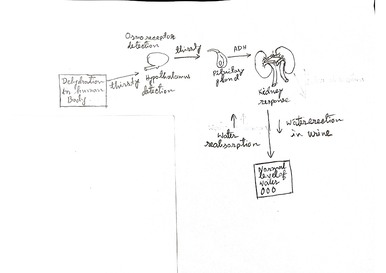 Osmoreceptor
detection
thirsty
ADH
Dehydration
in human
Body
thirsty
Hypothalamus
detection
Pituitary
gland
Kidney
response
↑
Water
reabsorption
↓ Waterexcretion
in urine
Normal
level of
water
000